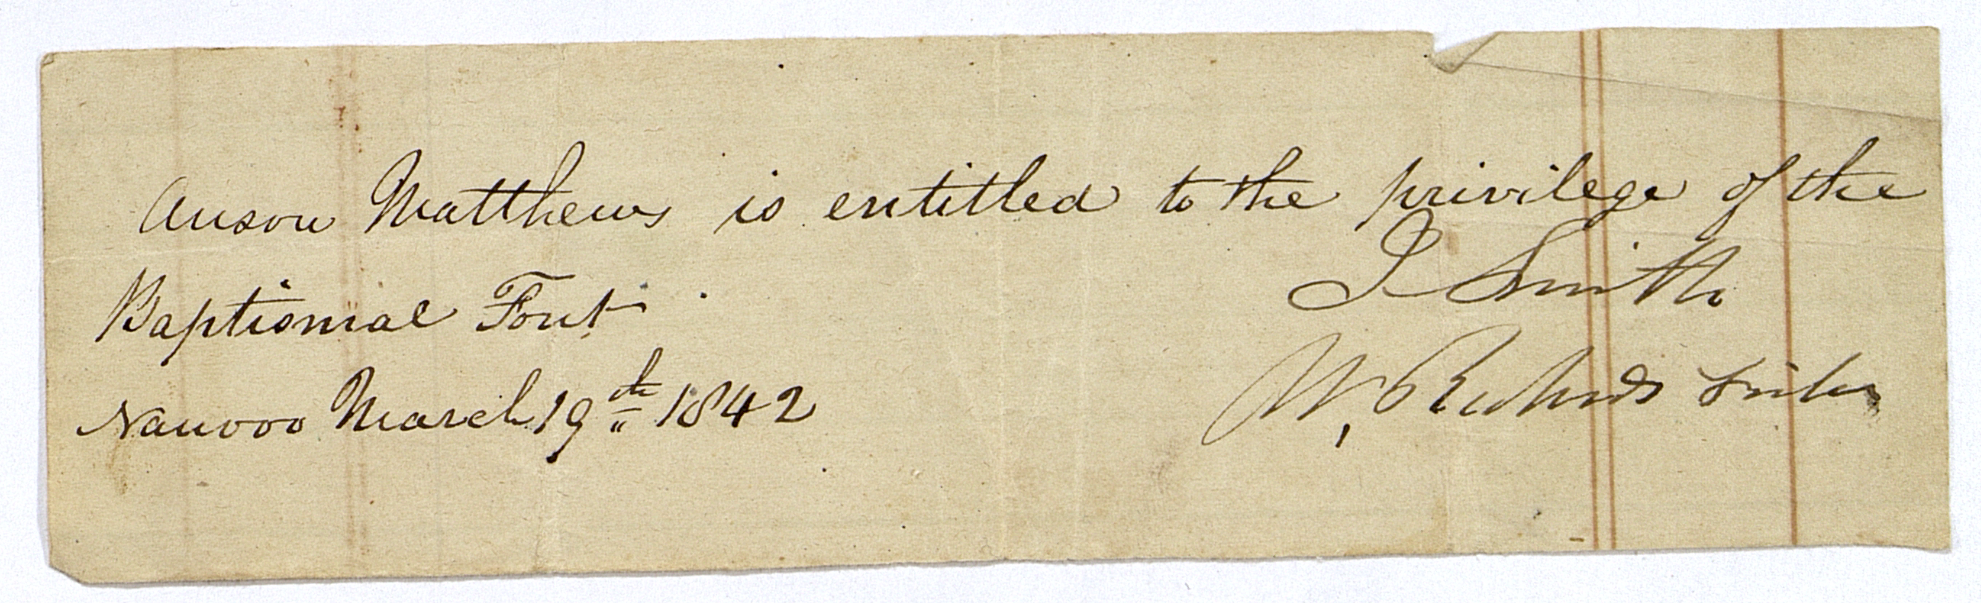 Anson Matthews is entitled to the privilege of the
Baptismal Font
J Smith
Nauvoo March 19th 1842
W, Richards